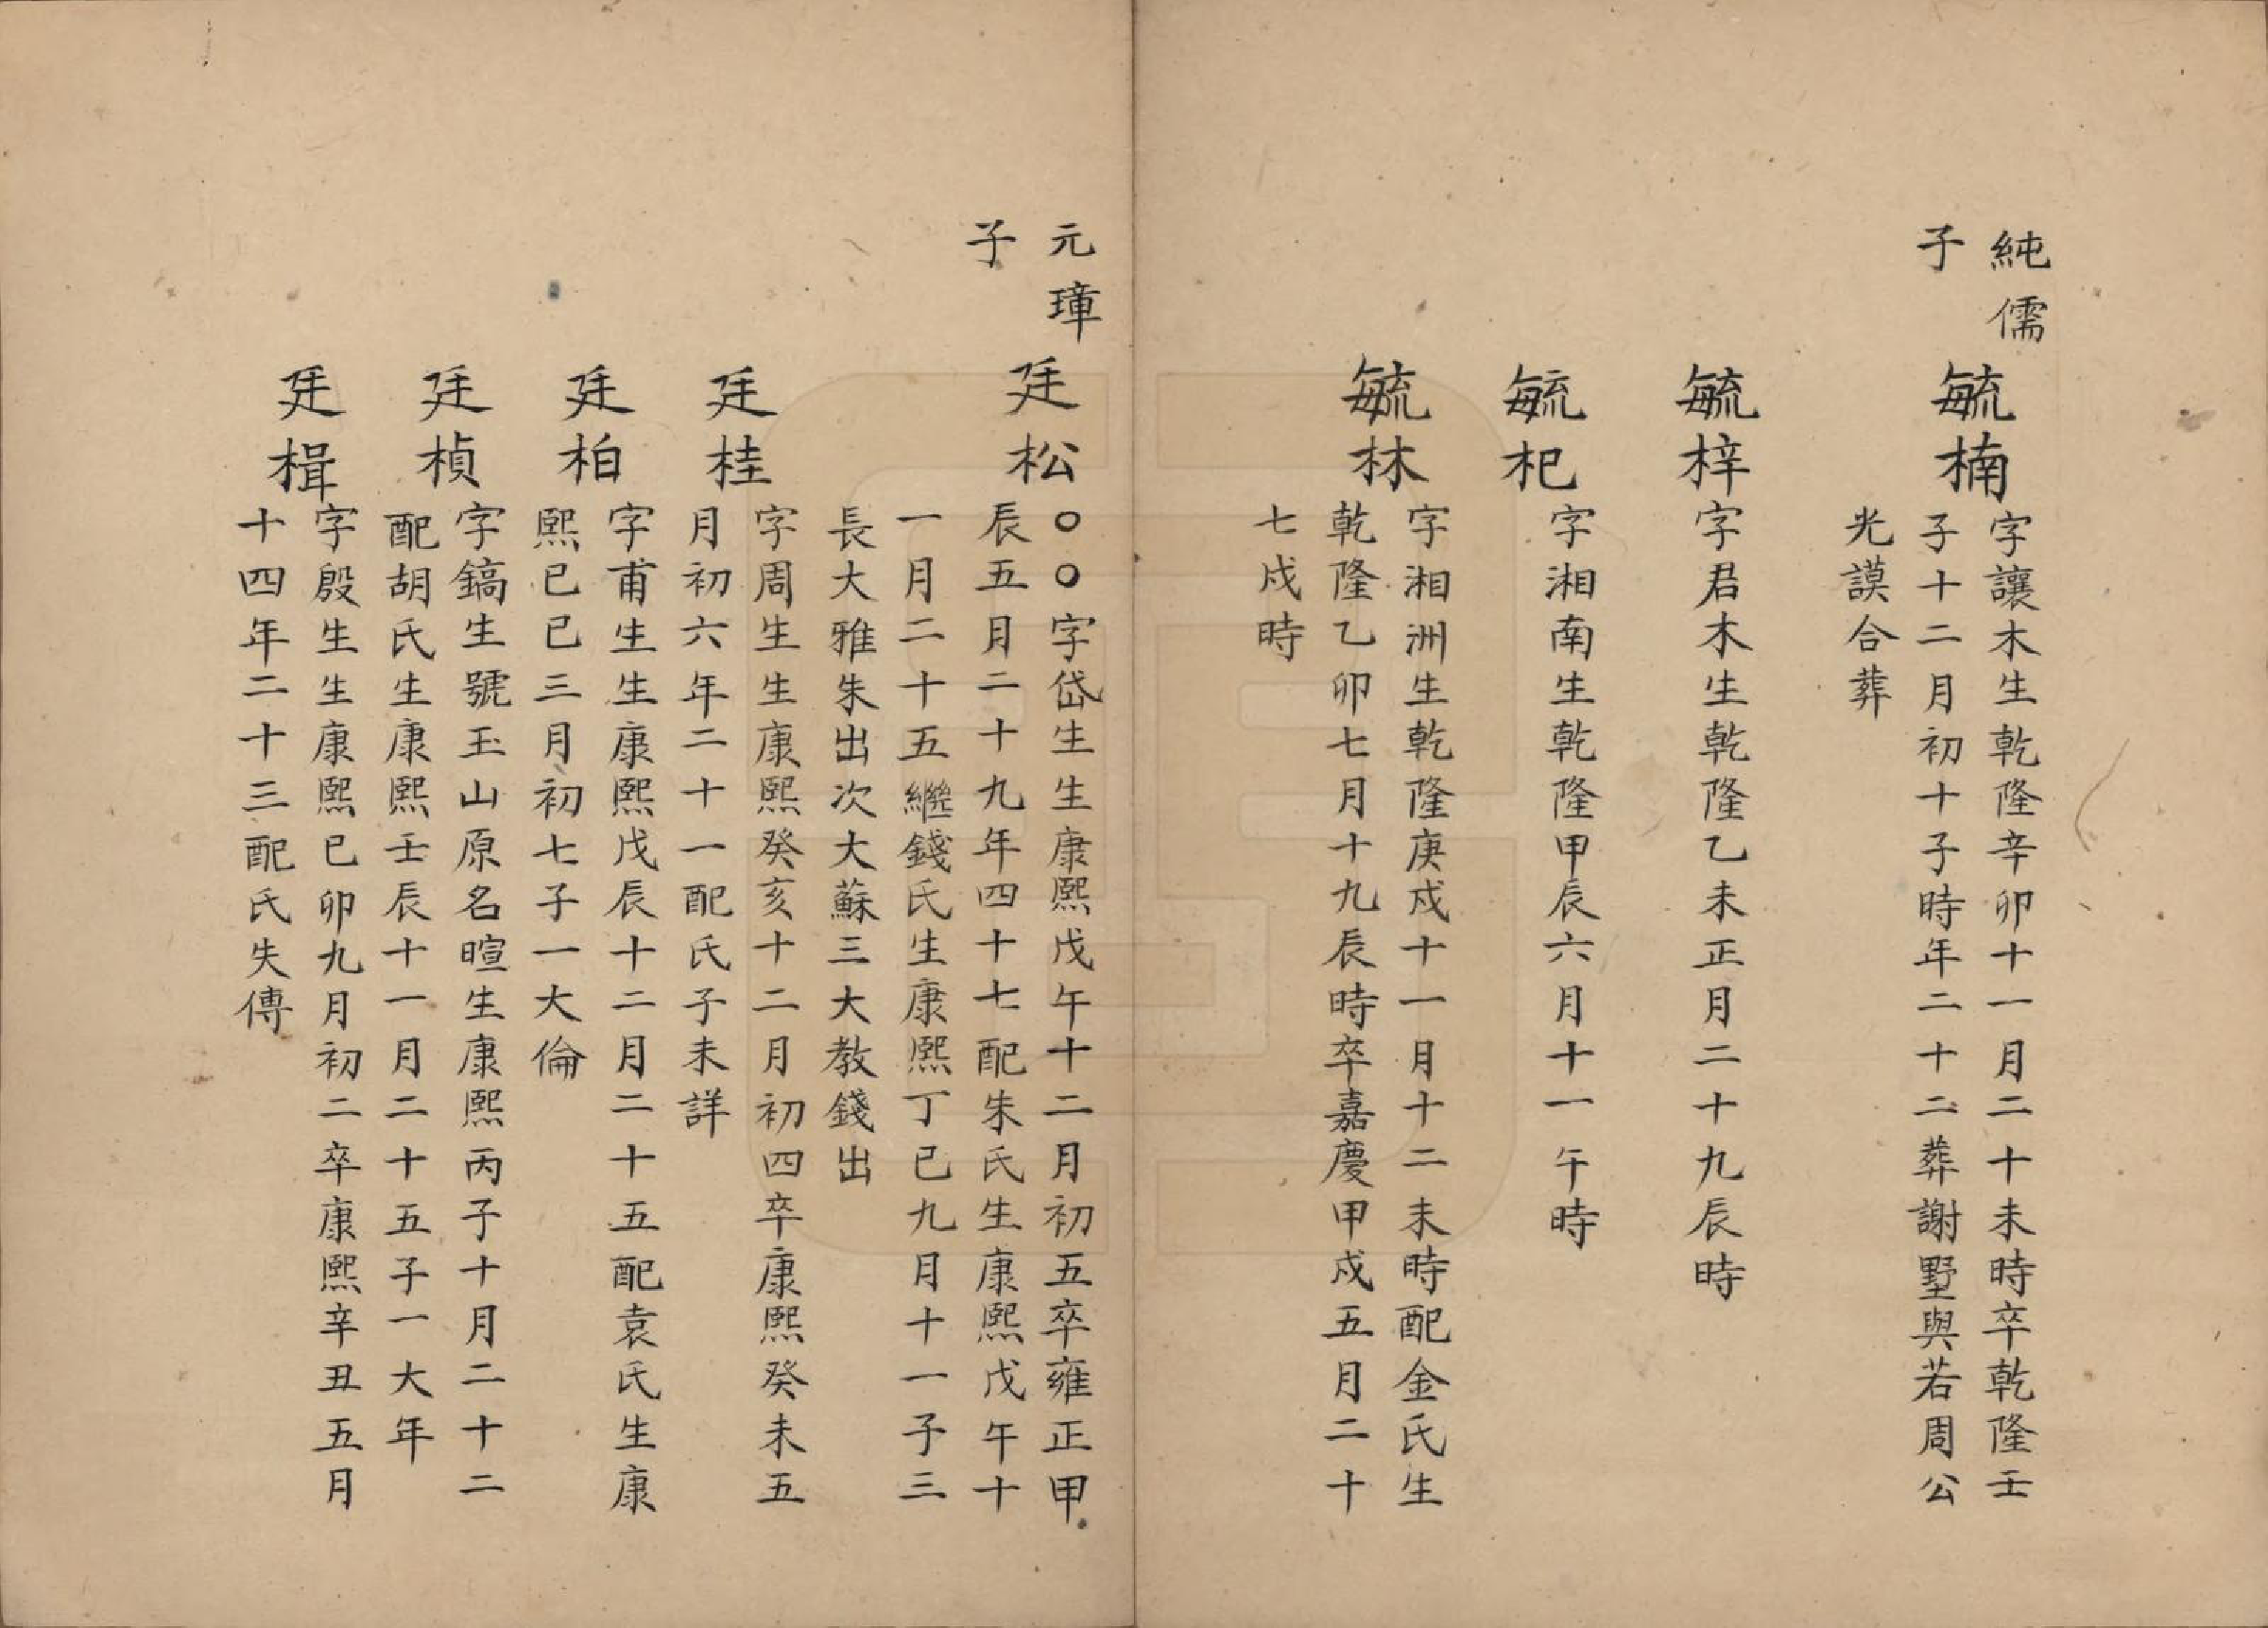 純儒
子
毓楠
字讓木生乾隆辛卯十一月二十未時卒乾隆壬
子十二月初十子時年二十二葬謝墅與若周公
光謨合葬
毓梓
字君木生乾隆乙未正月二十九辰時
毓杞
字湘南生乾隆甲辰六月十一午時
毓林
字湘洲生乾隆庚戌十一月十二未時配金氏生
乾隆乙卯七月十九辰時卒嘉慶甲戌五月二十
七戌時
元璋
子
廷松
〇〇字岱生生康熙戊午十二月初五卒雍正甲
辰五月二十九年四十七配朱氏生康熙戊午十
一月二十五繼錢氏生康熙丁巳九月十一子三
長大雅朱出次大蘇三大教錢出
廷桂
字周生生康熙癸亥十二月初四卒康熙癸未五
月初六年二十一配氏子未詳
廷柏
字甫生生康熙戊辰十二月二十五配袁氏生康
熙己巳三月初七子一大倫
廷楨
字鎬生號玉山原名暄生康熙丙子十月二十二
配胡氏生康熙壬辰十一月二十五子一大年
廷楫
字殷生生康熙己卯九月初二卒康熙辛丑五月
十四年二十三配氏失傳